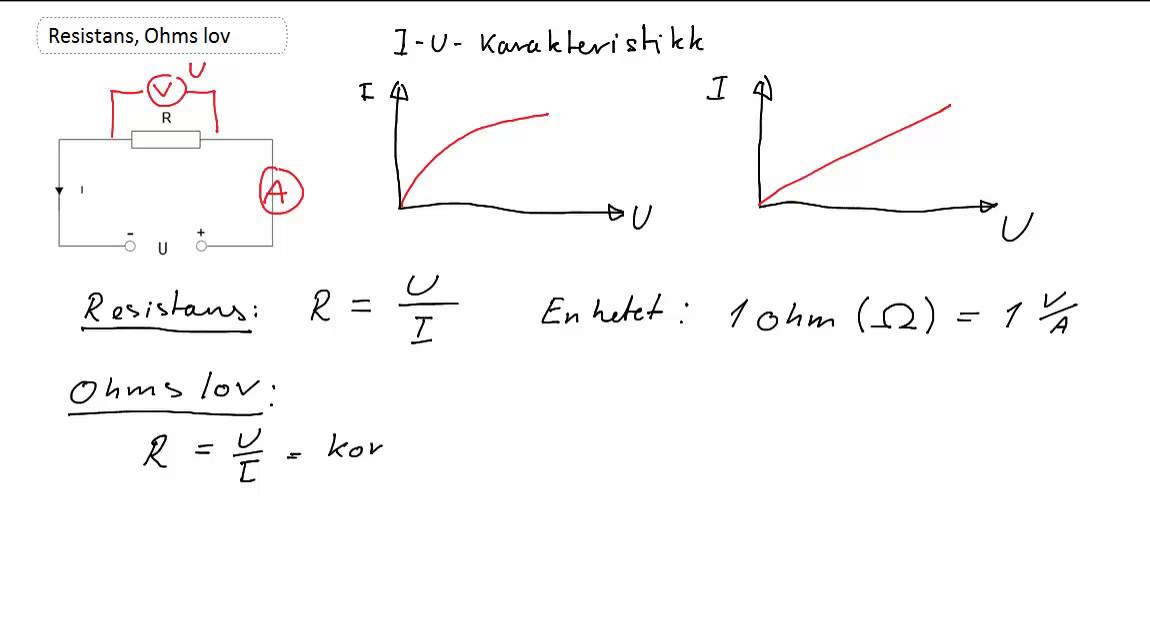 Resistans, Ohms lov
I-U-Karakteristikk
U
V
R
A
I
- U +
I
U
I
U
Resistans: R = U/I Enhetet: 1 ohm (Ω) = 1 V/A
Ohms lov:
R = U/I = kor